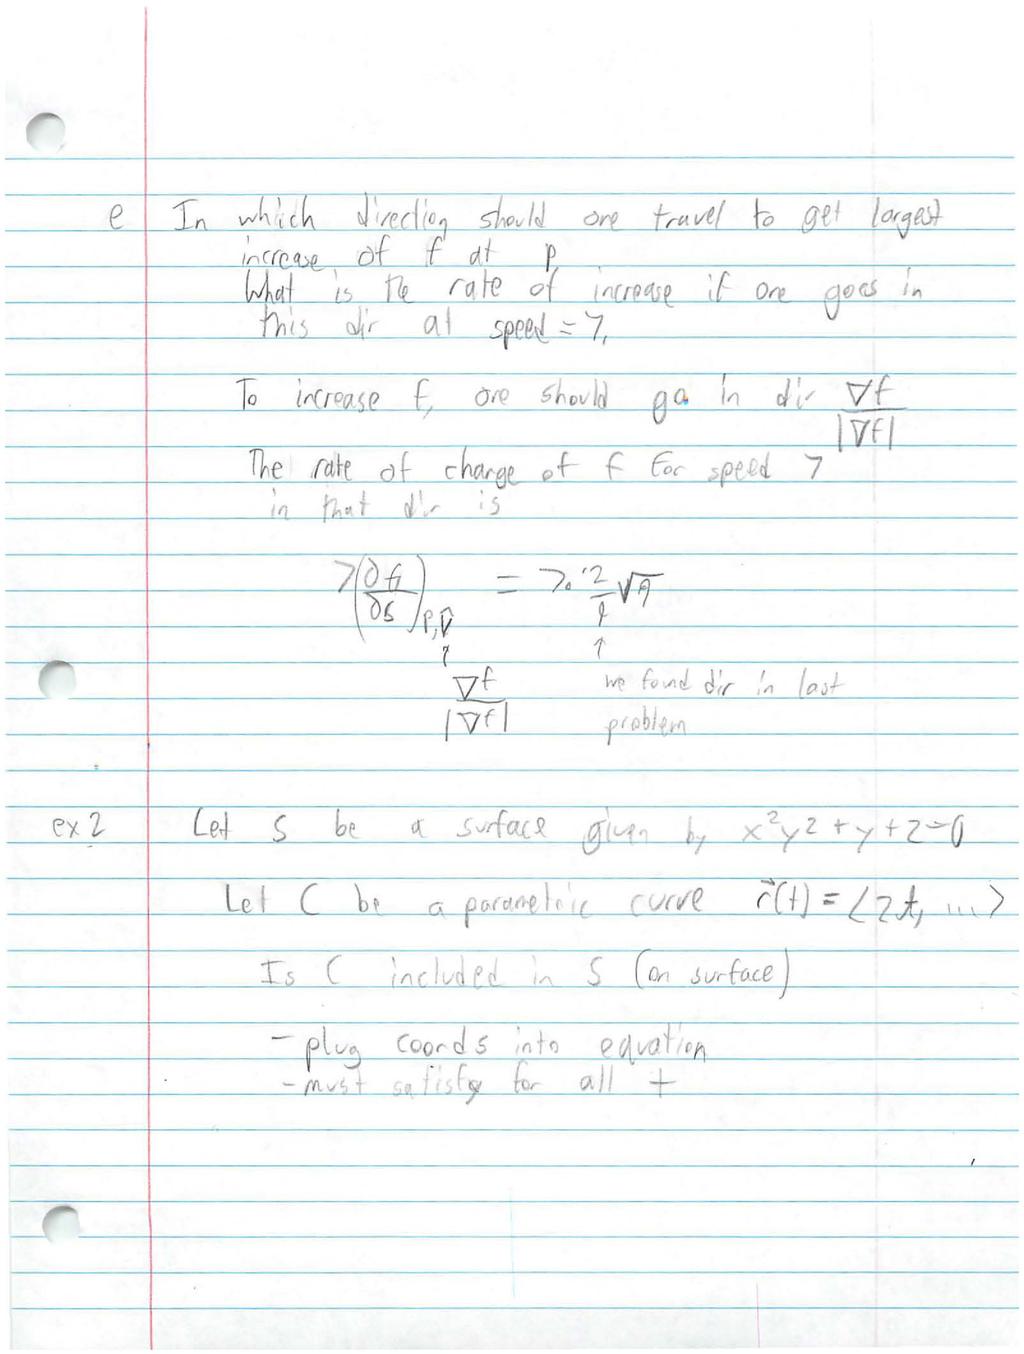 e In which direction should one travel to get largest
increase of f at p
What is the rate of increase if one goes in
this dir at speed = 7.
To increase f, one should go in dir ∇f / |∇f|
The rate of change of f for speed 7
in that dir is
7(∂f/∂s)P,û = 7 ·
↑ ↑
∇f / |∇f| we found dir in last
problem
ex 2 Let S be a surface given by x²y² + y + z = 0
Let C be a parametric curve r⃗(t) = <2t, ...>
Is C included in S (on surface)
- plug coords into equation
- must satisfy for all t